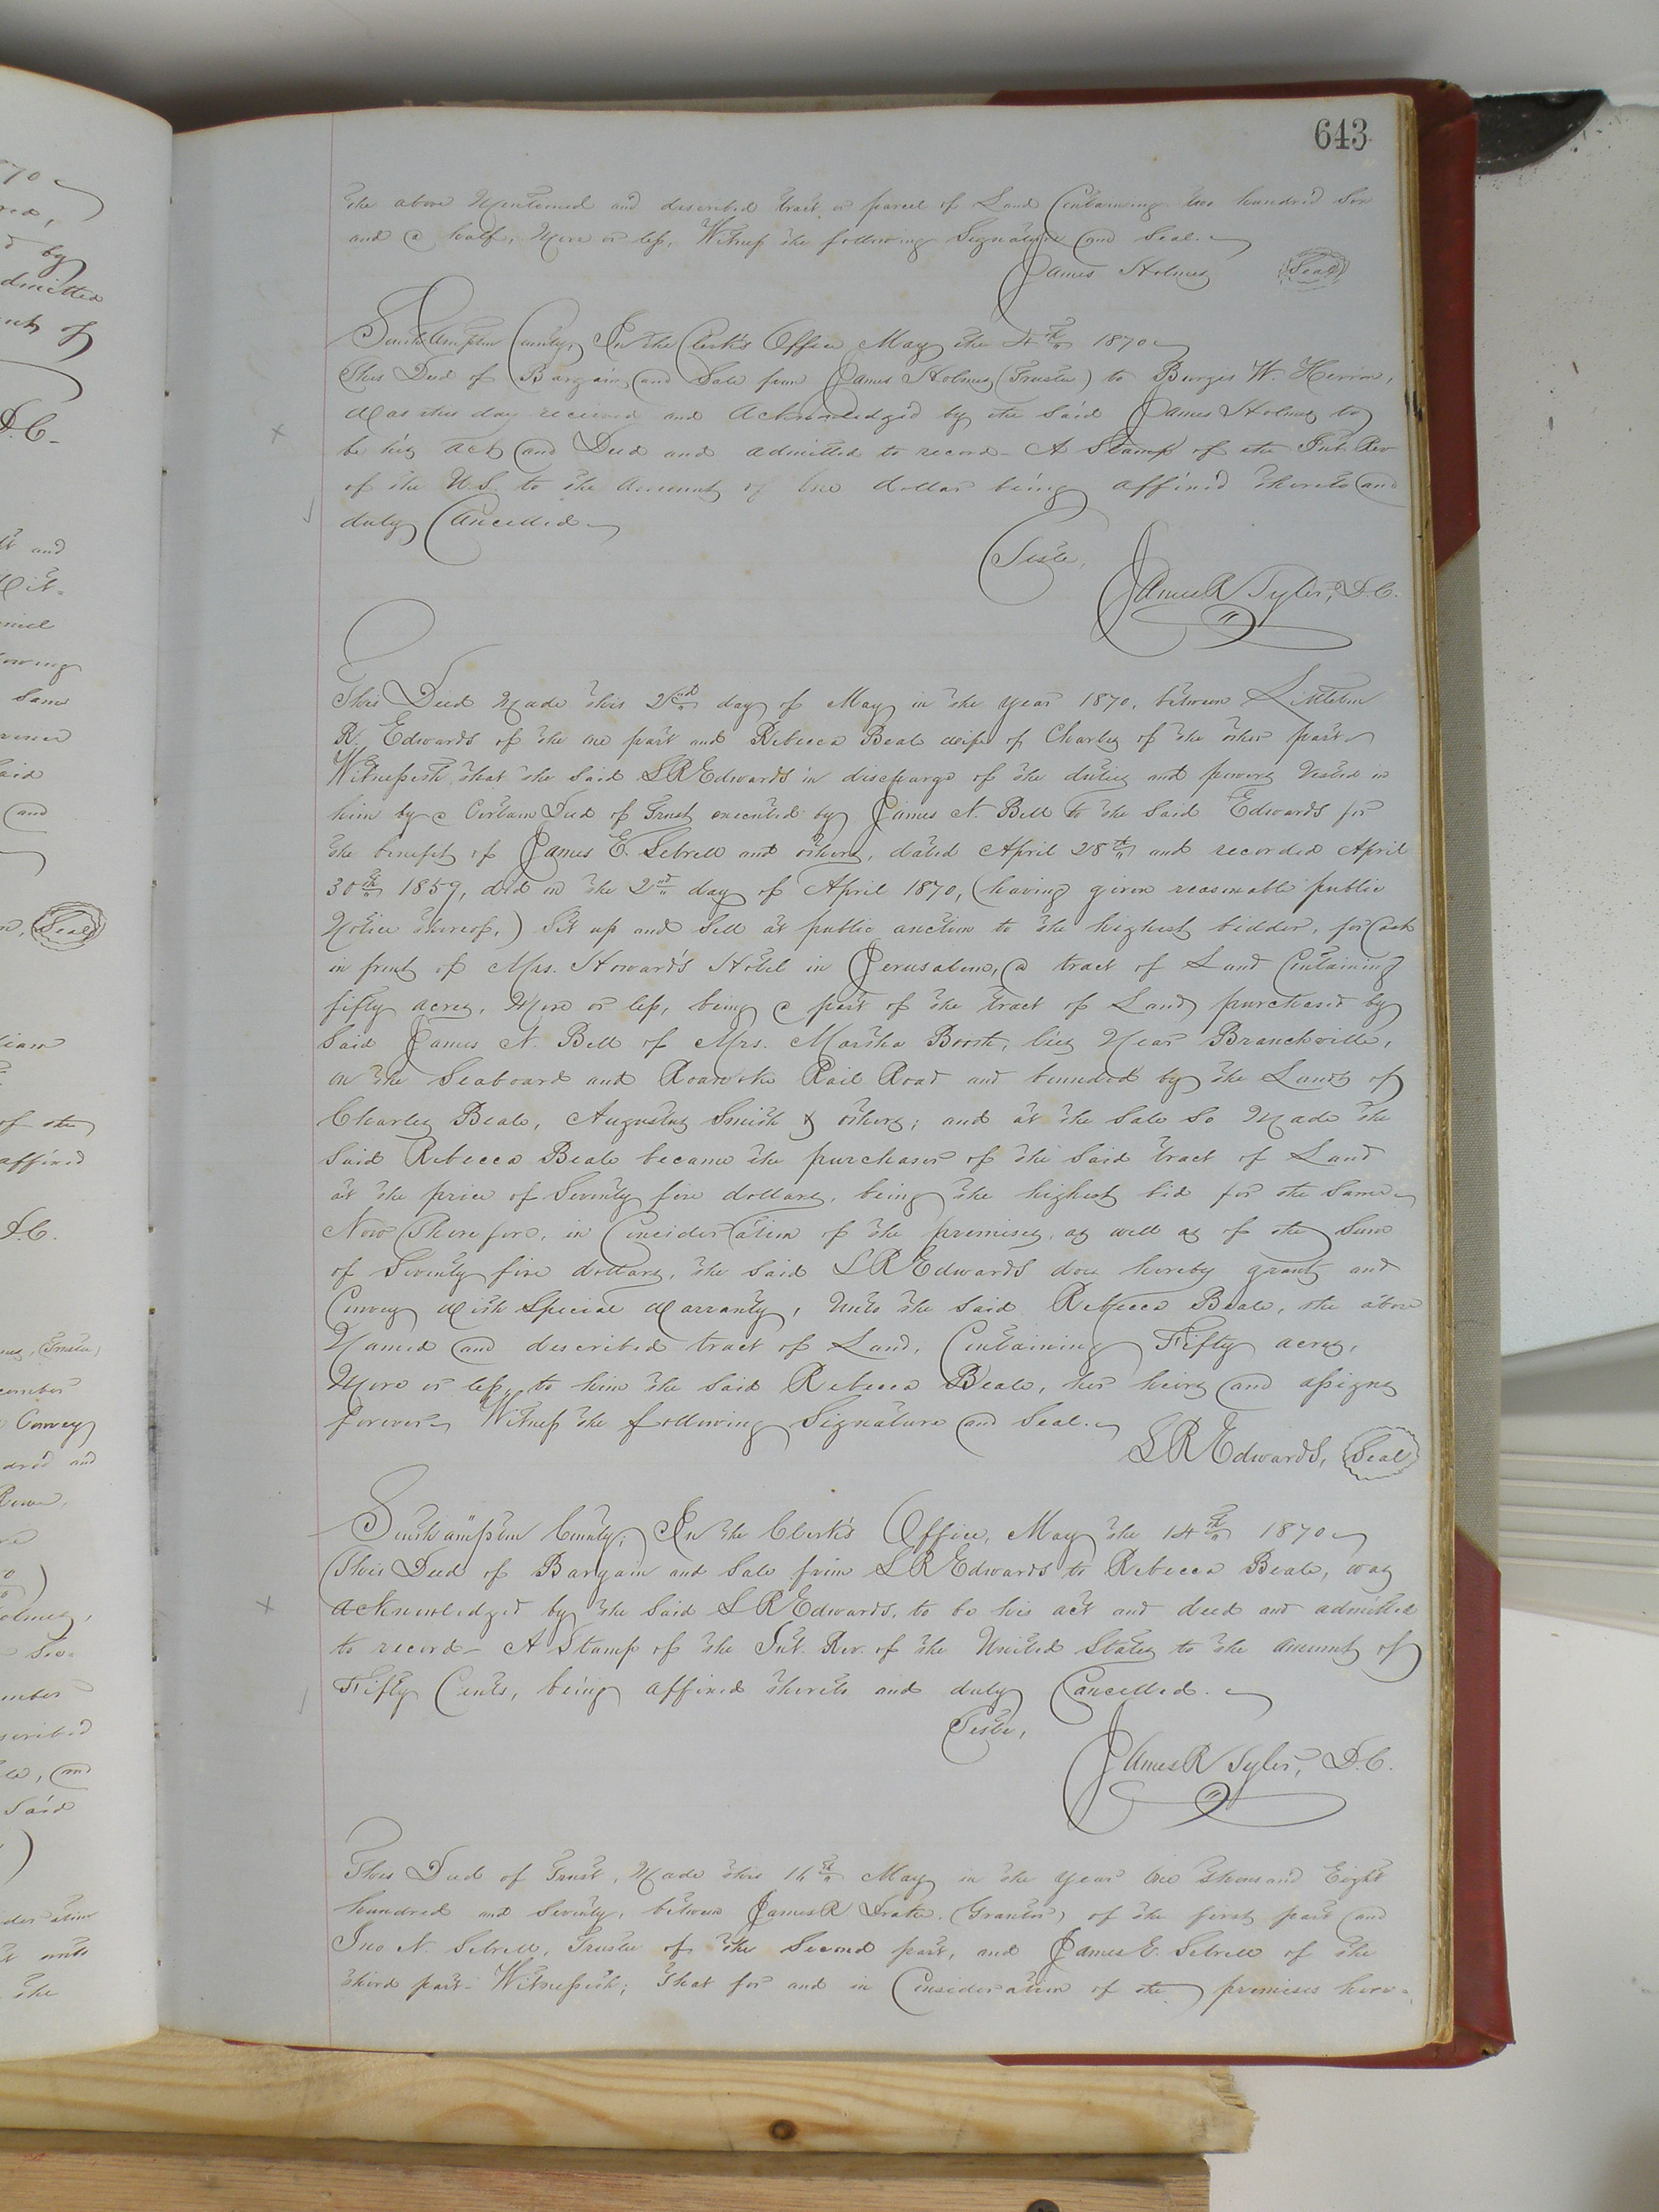 643
the above mentioned and described tract or parcel of Land Containing two hundred Six
and a half, More or less, Witness the following Signature and Seal.
James Holmes Seal
Southampton County, In the Clerk's Office May the 4th 1870
This Deed of Bargain and Sale from James Holmes (Trustee) to Burges W. Herrin,
Was this day received and Acknowledged by the Said James Holmes to
be his act and Deed and admitted to record - A Stamp of the Int. Rev
of the U.S. to the Amount of One dollar being affixed thereto and
duly Cancelled
Teste,
James R Tyler, D.C.
This Deed Made this 2nd day of May in the year 1870, between Littleton
R. Edwards of the one part and Rebecca Beale wife of Charles of the other part
Witnesseth, that the Said L R Edwards in discharge of the duties and powers Vested in
him by a Certain Deed of Trust executed by James N. Bell to the Said Edwards for
the benefit of James E. Sebrell and others, dated April 28th and recorded April
30th 1859, did on the 2nd day of April 1870, (having given reasonable public
Notice thereof,) Set up and Sell at public auction to the highest bidder, for Cash
in front of Mrs. Howard's Hotel in Jerusalem, a tract of Land Containing
fifty acres, More or less, being a part of the tract of Land purchased by
Said James N. Bell of Mrs. Martha Booth, lies Near Branchville,
on the Seaboard and Roanoke Rail Road and bounded by the Lands of
Charles Beale, Augustus Smith & others; and at the Sale So Made the
Said Rebecca Beale became the purchaser of the Said tract of Land
at the price of Seventy five dollars, being the highest bid for the Same
Now Therefore, in Consideration of the premises, as well as of the Sum
of Seventy five dollars, the Said L R Edwards does hereby grant and
Convey With Special Warranty, Unto the Said Rebecca Beale, the above
Named and described tract of Land, Containing Fifty acres,
More or less, to him the Said Rebecca Beale, her heirs and assigns
forever, Witness the following Signature and Seal.
L R Edwards, Seal
Southampton County; In the Clerk's Office, May the 14th 1870
This Deed of Bargain and Sale from L R Edwards to Rebecca Beale, was
acknowledged by the Said L R Edwards, to be his act and deed and admitted
to record - A Stamp of the Int. Rev. of the United States to the Amount of
Fifty Cents, being affixed thereto and duly Cancelled.
Teste,
James R Tyler, D.C.
This Deed of Trust, Made this 14th May in the year One thousand Eight
hundred and Seventy, between James R Drake (Grantor) of the first part and
Jno N. Sebrell, Trustee of the Second part, and James E. Sebrell of the
third part - Witnesseth; That for and in Consideration of the premises here=